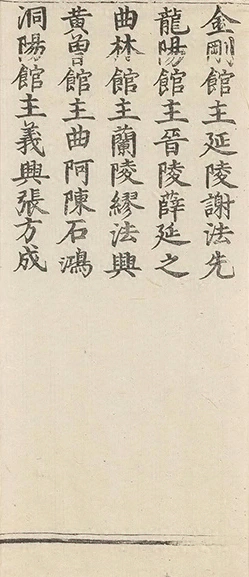 金剛館主延陵謝法先
龍陽館主晉陵薛延之
曲林館主蘭陵繆法興
黄曾館主曲阿陳石鴻
洞陽館主義興張方成